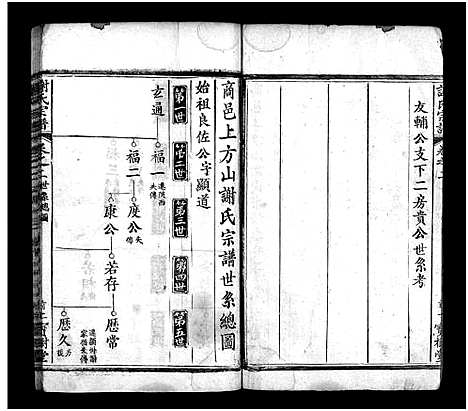 友輔公支下二房貴公世系考
商邑上方山謝氏宗譜世系總圖
始祖良佐公字顯道
第一世
第二世
第三世
第四世
第五世
玄通
福一
遷陝西
失傳
福二
度公
失傳
康公
若存
歷常
歷久
謝氏宗譜
卷之二
世系總圖
寶樹堂